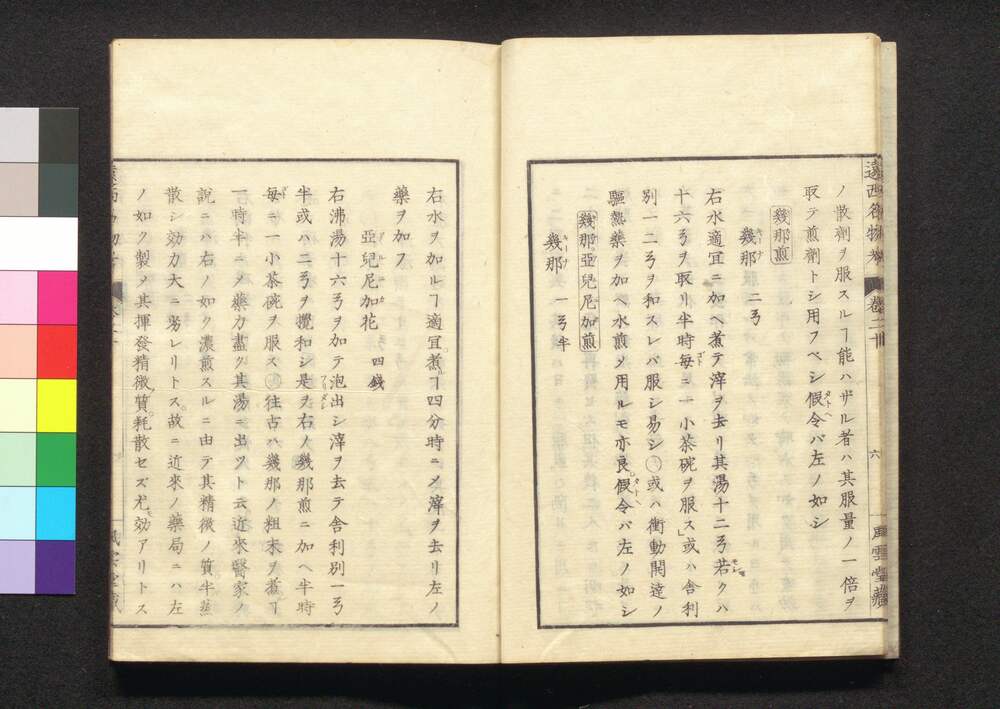 遠西名物考 卷二十 六 風雲堂藏
ノ散劑ヲ服スルヿ能ハザル者ハ其服量ノ一倍ヲ
取テ煎劑トシ用フベシ假令バ左ノ如シ
幾那煎
幾那 二弓
右水適宜ニ加ヘ煮テ滓ヲ去リ其湯十二弓若クハ
十六弓ヲ取リ半時毎ニ一小茶碗ヲ服ス」或ハ舎利
別一二弓ヲ和スレバ服シ易シ○或ハ衝動開達ノ
驅熱藥ヲ加ヘ水煎乄用ルモ亦良。假令バ左ノ如シ
幾那亞兒尼加煎
幾那 一弓半
右水ヲ加ルヿ適宜煮ヿ四分時ニ乄滓ヲ去リ左ノ
藥ヲ加フ
亞兒尼加花 四錢
右沸湯十六弓ヲ加テ泡出シ滓ヲ去テ舎利別一弓
半或ハ二弓ヲ攪和シ是ヲ右ノ幾那煎ニ加ヘ半時
毎ニ一小茶碗ヲ服ス○往古ハ幾那ノ粗末ヲ煮ヿ
一時半ニ乄藥力盡ク其湯ニ出ツト云近來醫家ノ
説ニハ右ノ如ク濃煎スルニ由テ其精微ノ質半蒸
散シ効力大ニ劣レリトス。故ニ近來ノ藥局ニハ左
ノ如ク製乄其揮發精微ノ質耗散セズ尤効アリトス